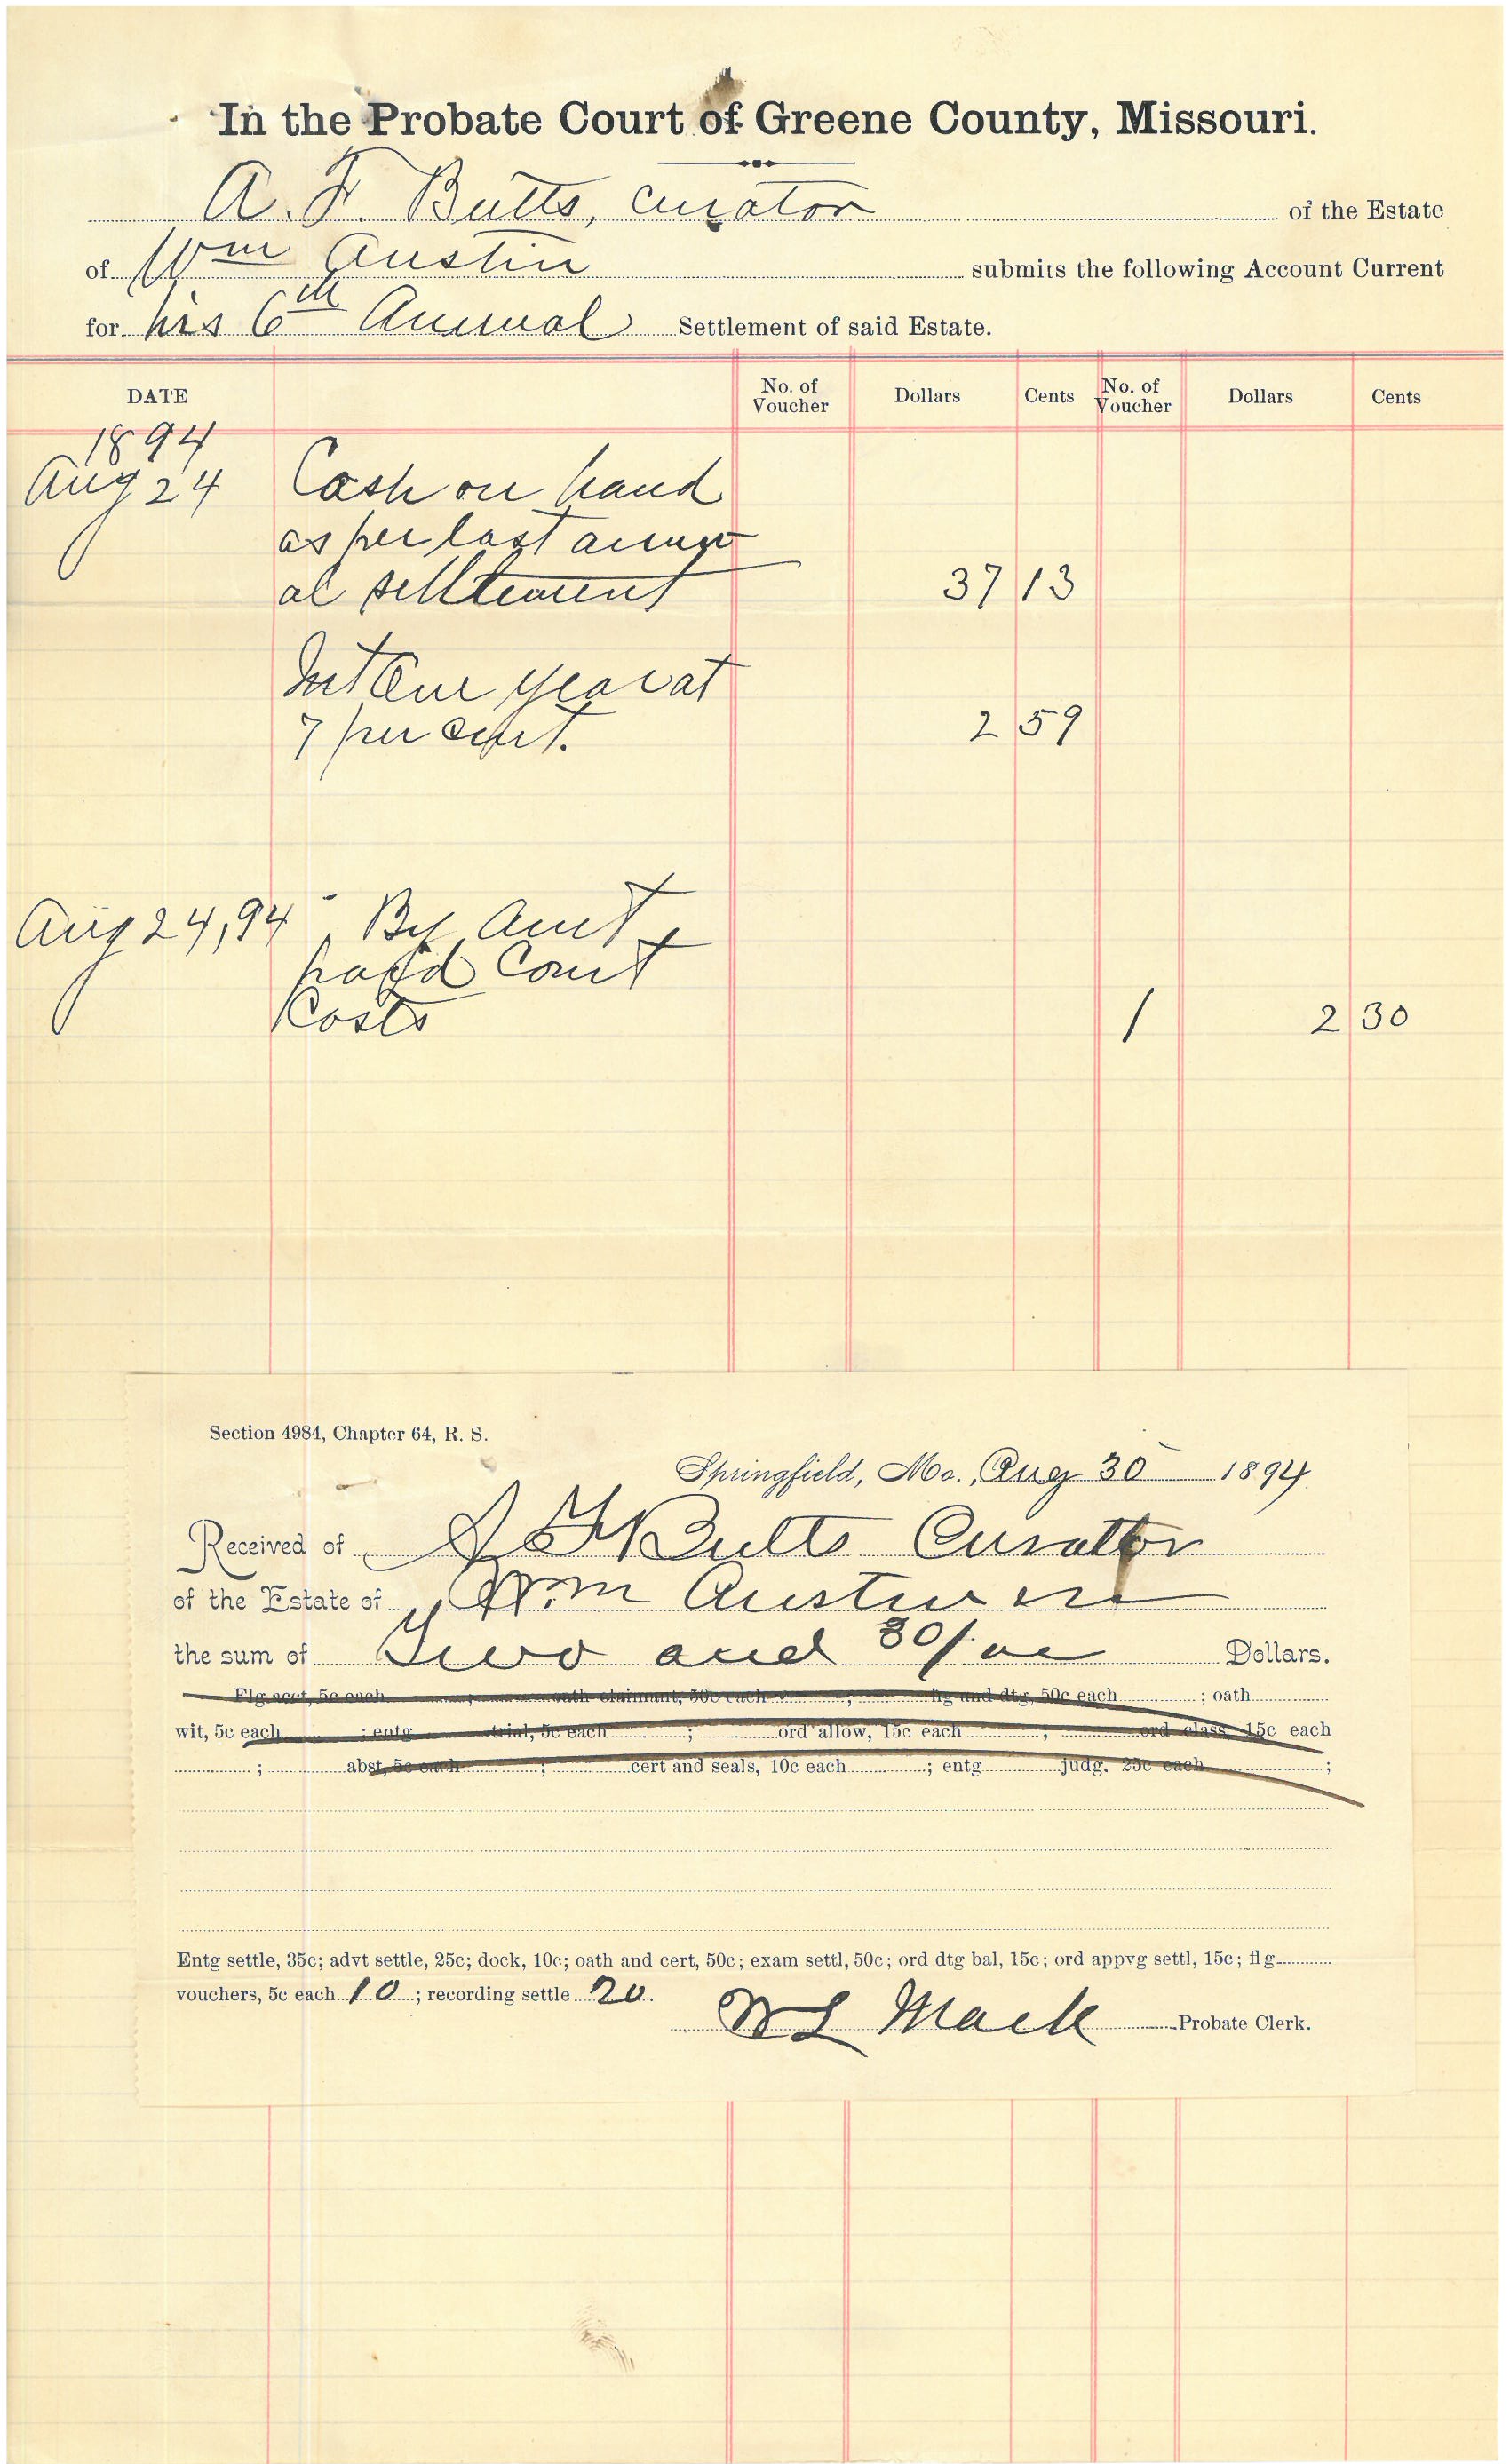 In the Probate Court of Greene County, Missouri.
A. F. Butts, curator of the Estate
of Wm Austin submits the following Account Current
for his 6th Annual Settlement of said Estate.
DATE No. of Voucher Dollars Cents No. of Voucher Dollars Cents
1894
Aug 24 Cash on hand
as per last annu
al settlement 37 13
Int One year at
7 per cent. 2 59
Aug 24, 94 By Amt
paid Court
Costs 1 2 30
Section 4984, Chapter 64, R. S.
Springfield, Mo., Aug 30 1894
Received of A F Butts Curator
of the Estate of Wm Austin
the sum of Two and 30/00 Dollars.
Flg acct, 5c each ; oath claimant, 50c each ; flg and dtg, 50c each ; oath
wit, 5c each ; entg trial, 5c each ; ord allow, 15c each ; ord class 15c each
; abst, 5c each ; cert and seals, 10c each ; entg judg. 25c each ;
Entg settle, 35c; advt settle, 25c; dock, 10c; oath and cert, 50c; exam settl, 50c; ord dtg bal, 15c; ord appvg settl, 15c; flg
vouchers, 5c each 10 ; recording settle 20.
W L Mack Probate Clerk.